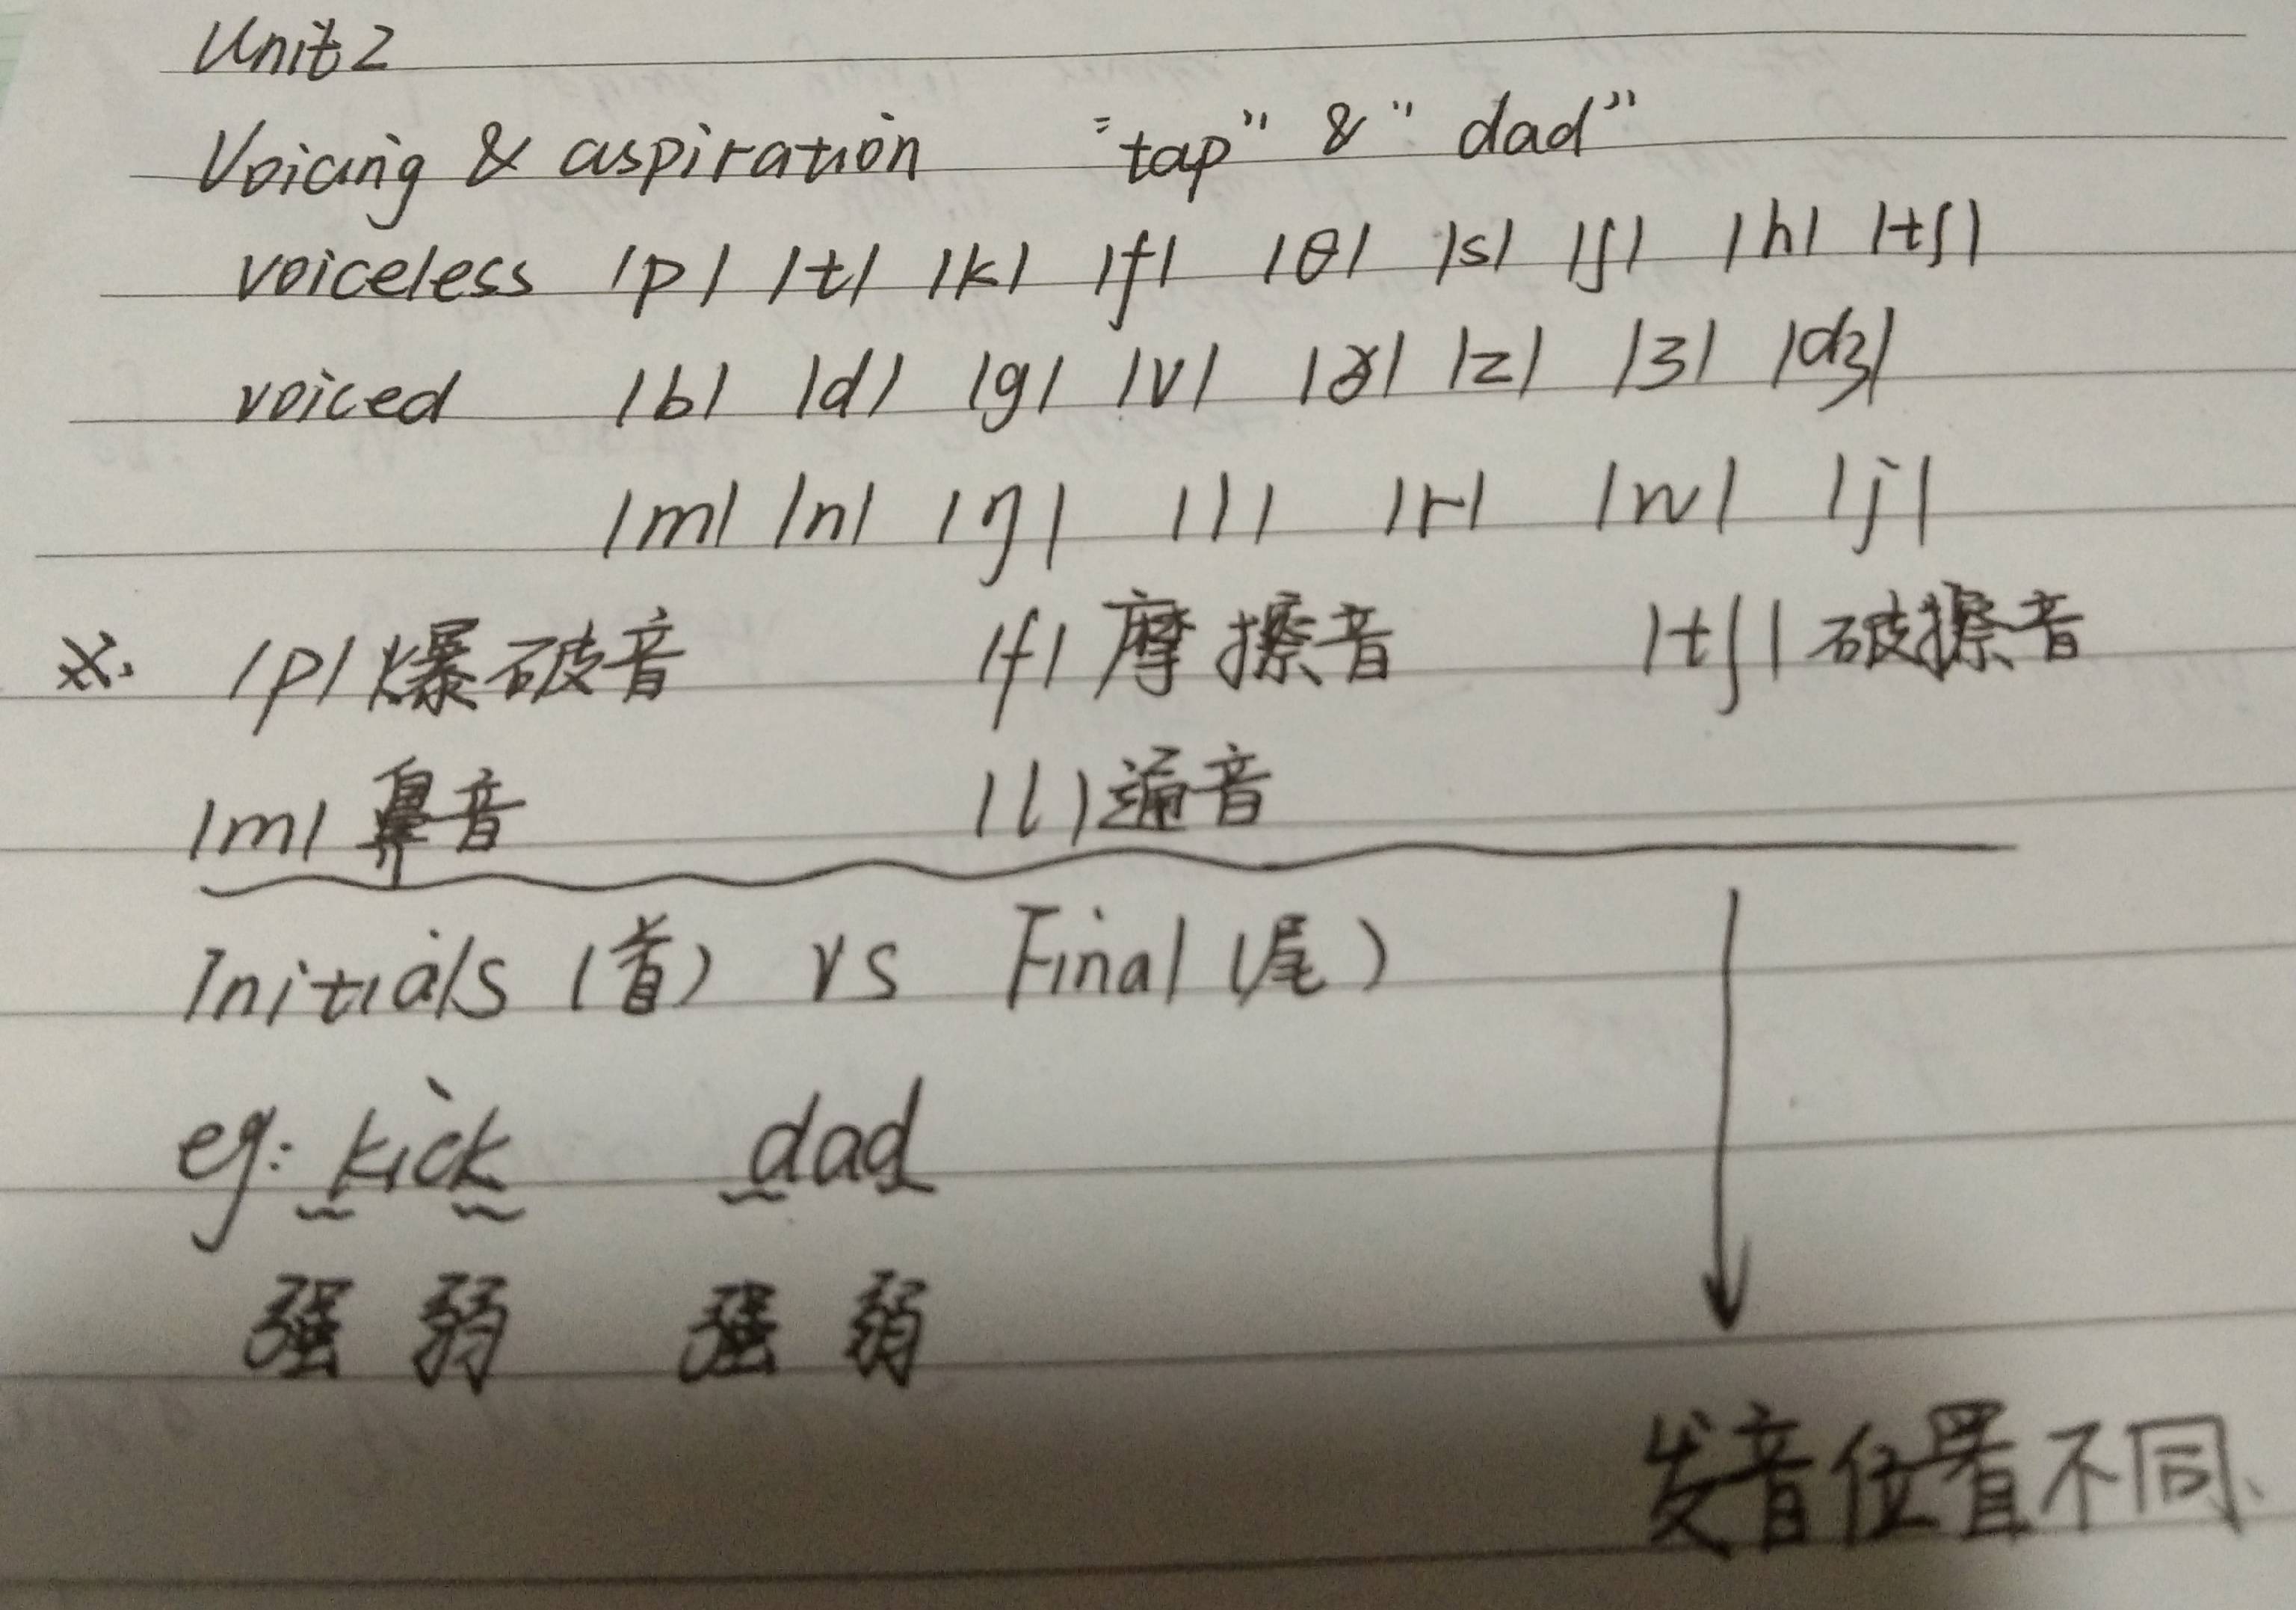 Unit 2
Voicing & aspiration "tap" & "dad"
voiceless /p/ /t/ /k/ /f/ /θ/ /s/ /ʃ/ /h/ /tʃ/
voiced /b/ /d/ /g/ /v/ /ð/ /z/ /ʒ/ /dʒ/
/m/ /n/ /ŋ/ /l/ /r/ /w/ /j/
※. /p/ 爆破音 /f/ 摩擦音 /tʃ/ 破擦音
/m/ 鼻音 /l/ 通音
Initials (首) vs Final (尾)
eg: kick dad
强 弱 强 弱
发音位置不同、